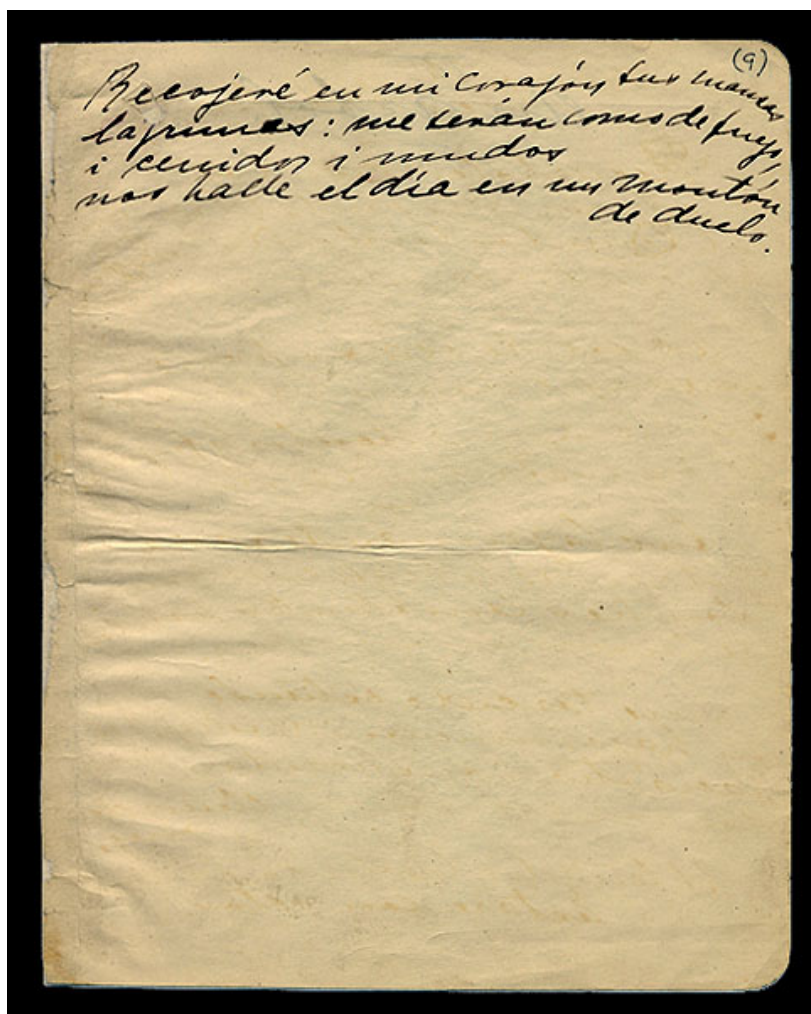 (9)
Recojeré en mi corazón tus mansas
lagrimas: me serán como de fuego,
i ceñidos i mudos
nos halle el día en un montón
de duelo.